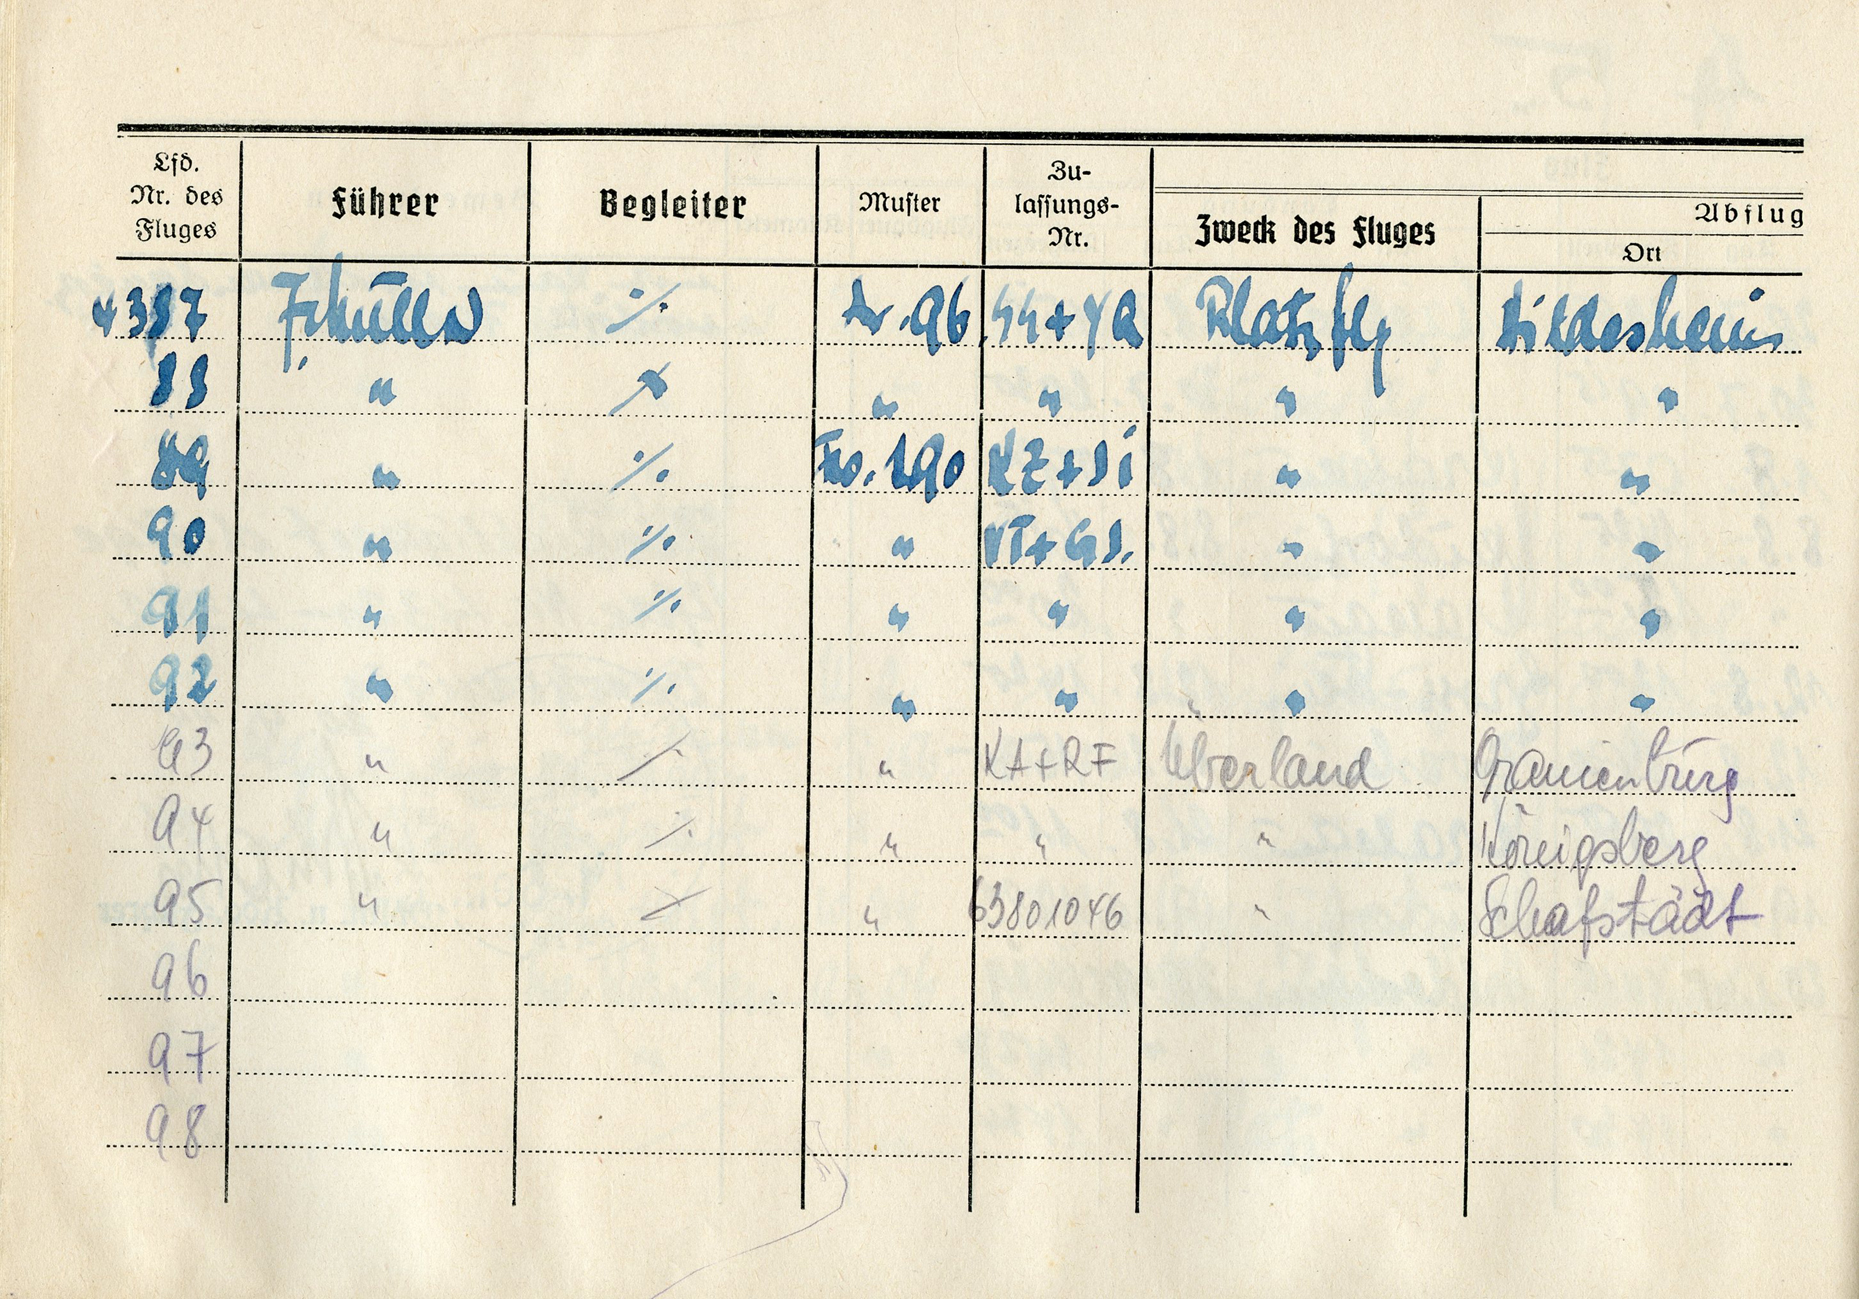 Lfd. Nr. des Fluges Führer Begleiter Muster Zulassungs-Nr. Zweck des Fluges Abflug Ort
4387 ·/· Ar. 96 Platzflg Hildesheim
88 " " " " "
89 " ·/· Fw. 190 KZ+SI " "
90 " ·/· " VT+GS. " "
91 " ·/· " " " "
92 " ·/· " " " "
93 " ·/· " KA+RF Überland Oranienburg
94 " ·/· " " " Königsberg
95 " ·/· " 63801046 " Schafstädt
96
97
98